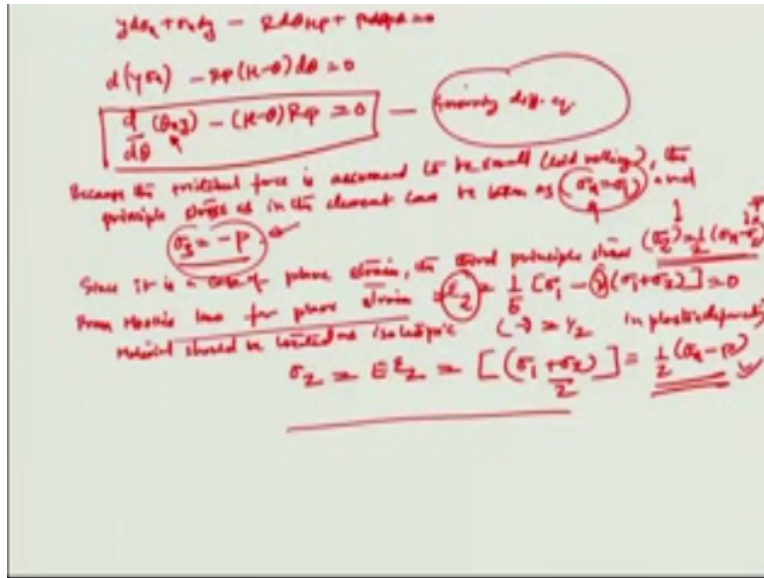 ydσₓ + σₓdy − Rdθμp + pθdθR = 0
d(yσₓ) − Rp(μ−θ)dθ = 0
d/dθ (σₓy) − (μ−θ)Rp = 0 — Governing diff. eq
Because the frictional force is assumed to be small (cold rolling), the
principle stress as in the element can be taken as (σₓ = σ₁) and
σ₃ = −p
Since it is a case of plane strain, the third principle stress (σ₂) = ½(σₓ −
From Hooke's law for plane strain = ε₂ = 1/E [σ₁ − ν(σ₁+σ₂)] = 0
Material should be treated as isotropic (ν = ½ in plastic
σ₂ = Eε₂ = [(σ₁ + σ₂)/2] = ½(σₓ − p)